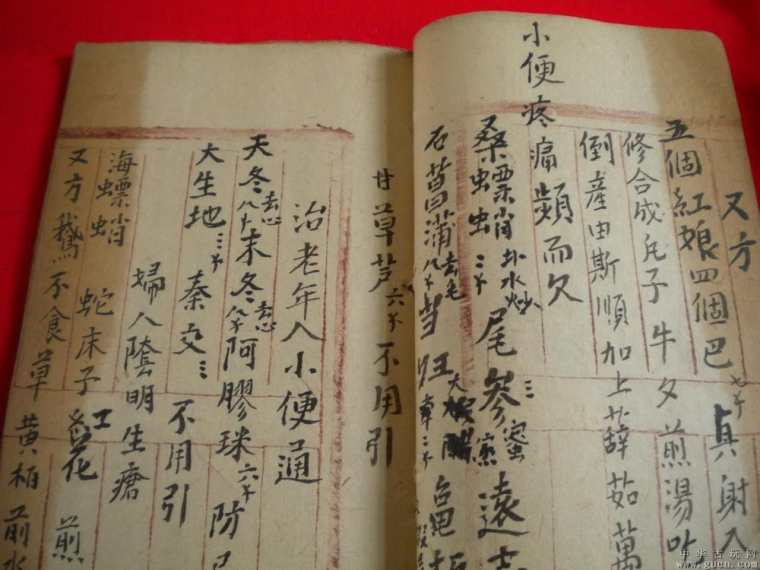 又方
五個紅娘四個巴 七个 真射入
修合成凡子牛夕煎湯
倒産由斯順加上薢茹萬
小便疼痛頻而欠
桑螵蛸 三个 盐水炒 尾參 三 蜜 遠志
石菖蒲 八个 去毛
甘草芦 六个 不用引
治老年人小便通
天冬 八个 去心 末冬 八个 去心 阿膠珠 六个 防
大生地 三个 秦交 三 不用引
婦人陰明生瘡
海螵蛸 蛇床子 紅花 煎
又方鵝不食草黄柏前水
中华古玩网
www.gucn.com